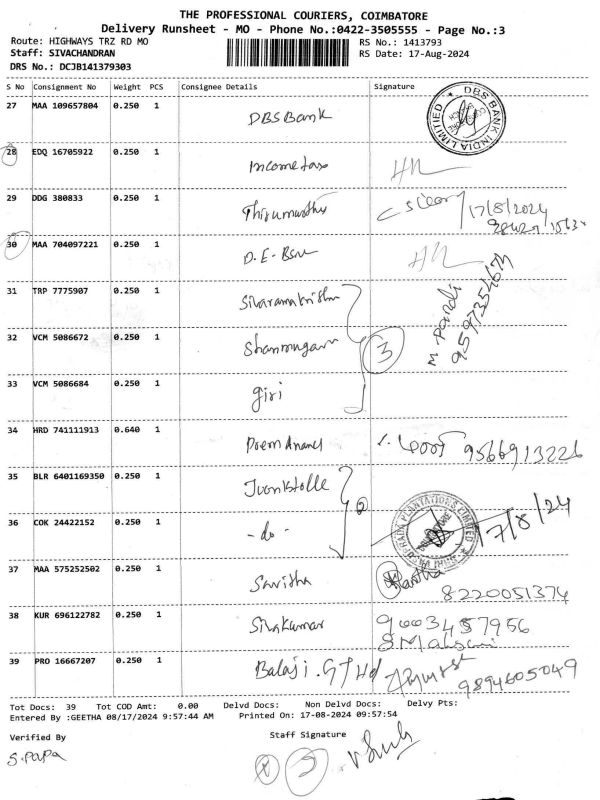 THE PROFESSIONAL COURIERS, COIMBATORE
Delivery Runsheet - MO - Phone No.:0422-3505555 - Page No.:3
Route: HIGHWAYS TRZ RD MO RS No.: 1413793
Staff: SIVACHANDRAN RS Date: 17-Aug-2024
DRS No.: DCJB141379303
S No Consignment No Weight PCS Consignee Details Signature
27 MAA 109657804 0.250 1 DBS Bank DBS BANK INDIA LIMITED
28 EDQ 16705922 0.250 1 Income tax
29 DDG 380833 0.250 1 17/8/2024
30 MAA 704097221 0.250 1
31 TRP 7775907 0.250 1 Sivaramakrishn M. Pandi
32 VCM 5086672 0.250 1 Shanmugam 3
33 VCM 5086684 0.250 1 giri
34 HRD 741111913 0.640 1 Prem Anand 9566913226
35 BLR 6401169350 0.250 1 2
36 COK 24422152 0.250 1 -do- 17/8/24
37 MAA 575252502 0.250 1 Savitha 8220051374
38 KUR 696122782 0.250 1 Sivakumar 9003457956
39 PRO 16667207 0.250 1 Balaji. 9894605049
Tot Docs: 39 Tot COD Amt: 0.00 Delvd Docs: Non Delvd Docs: Delvy Pts:
Entered By :GEETHA 08/17/2024 9:57:44 AM Printed On: 17-08-2024 09:57:54
Verified By Staff Signature
S. Papa